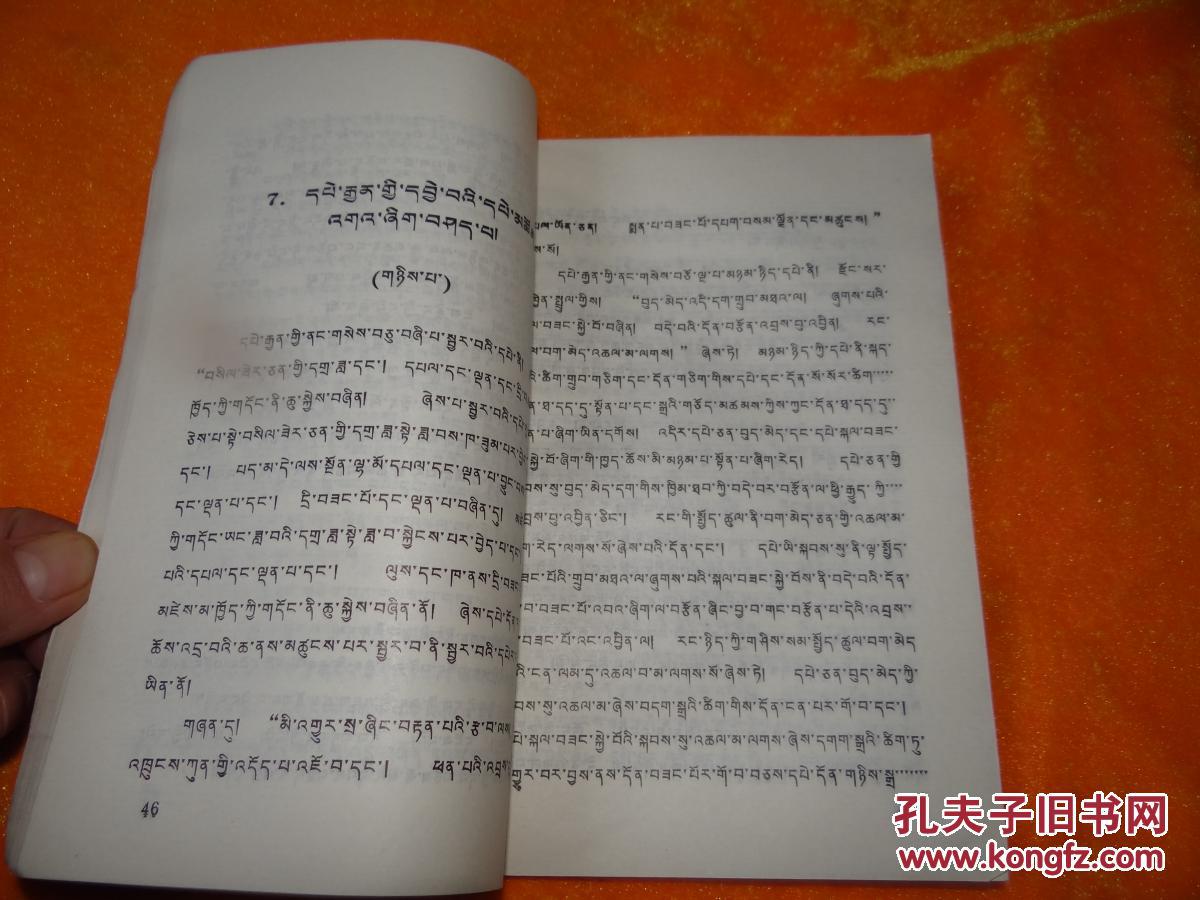 7. དཔེ་རྒྱན་གྱི་དབྱེ་བའི་དཔེ་མཚོ
འགའ་ཞིག་བཤད་པ།
(གཉིས་པ་)
དཔེ་རྒྱན་གྱི་ནང་གསེས་བཅུ་བཞི་པ་སྦྱར་བའི་དཔེ་ནི།
“བསིལ་ཟེར་ཅན་གྱི་དགྲ་ཟླ་དང་། དཔལ་དང་ལྡན་དང་དྲི
ཁྱོད་ཀྱི་གདོང་ནི་ཆུ་སྐྱེས་བཞིན། ཞེས་པ་སྦྱར་བའི་དཔེ
ཅེས་པ་སྟེ་བསིལ་ཟེར་ཅན་གྱི་དགྲ་ཟླ་སྟེ་ཟླ་བས་ཁ་ཟུམ་པར་བྱེད
དང་། པད་མ་དེ་ལས་སྔོན་ལྷ་མོ་དཔལ་དང་ལྡན་པ་བྱུང་བས
དང་ལྡན་པ་དང་། དྲི་བཟང་པོ་དང་ལྡན་པ་བཞིན་དུ།
ཀྱི་གདོང་ཡང་ཟླ་བའི་དགྲ་ཟླ་སྟེ་ཟླ་བ་སྐྱེངས་པར་བྱེད་པ་དང
པའི་དཔལ་དང་ལྡན་པ་དང་། ལུས་དང་ཁ་ནས་དྲི་བཟང
མཛེས་མ་ཁྱོད་ཀྱི་གདོང་ནི་ཆུ་སྐྱེས་བཞིན་ནོ། ཞེས་དཔེ་དོན
ཆོས་འདྲ་བའི་ཆ་ནས་མཚུངས་པར་སྦྱར་བ་ནི་སྦྱར་བའི་དཔེར
ཡིན་ནོ།
གཞན་དུ། “མི་འགྱུར་སྲ་ཞིང་བརྟན་པའི་རྩ་བ་ལས
འཁྲུངས་ཀུན་གྱི་འདོད་པ་འཇོ་བ་དང་། ཕན་པའི་འབྲས
46
པལ་ཡོན་ཅན། སྨན་པ་བཟང་པོ་དཔག་བསམ་ལྗོན་དང་མཚུངས།”
ས་སོ།
དཔེ་རྒྱན་གྱི་ནང་གསེས་བཅོ་ལྔ་པ་མཉམ་ཉིད་དཔེ་ནི། རྫོང་སར་
སྤྲུལ་གྱིས། “བུད་མེད་འདི་དག་གྲུབ་མཐའ་ལ། ཞུགས་པའི་
ལ་བཟང་སྐྱེ་བོ་བཞིན། བདེ་བའི་དོན་བརྩོན་འབྲས་བུ་འབྱིན། རང་
བག་མེད་འཆལ་མ་ལགས།” ཞེས་ཏེ། མཉམ་ཉིད་ཀྱི་དཔེ་ནི་སྐད་
ཚིག་གྲུབ་གཅིག་དང་དོན་གཅིག་གིས་དཔེ་དང་དོན་སོ་སོར་ཚིག་····
ཐ་དད་དུ་སྟོན་པ་དང་སྒྲའི་གཅོད་མཚམས་ཀྱིས་ཀྱང་དོན་ཐ་དད་དུ་··
པ་ཞིག་ཡིན་དགོས། འདིར་དཔེ་ཅན་བུད་མེད་དང་དཔེ་སྐལ་བཟང་
སྐྱེ་བོ་ཞིག་གི་ཁྱད་ཆོས་མི་མཉམ་པ་སྟོན་པ་ཞིག་རེད། དཔེ་ཅན་གྱི
བས་སུ་བུད་མེད་དག་གིས་ཁྱིམ་ཐབ་ཀྱི་བདེ་བར་བརྩོན་ལ་ཕྱི་རྒྱུད་ཀྱི་····
འབྲས་བུ་འབྱིན་ཅིང་། རང་གི་སྤྱོད་ཚུལ་ནི་བག་མེད་ཅན་གྱི་འཆལ་མ་
རེད་ལགས་སོ་ཞེས་པའི་དོན་དང་། དཔེ་ཡི་སྐབས་སུ་ནི་ལྟ་སྤྱོད་
བཟང་པོའི་གྲུབ་མཐའ་ལ་ཞུགས་པའི་སྐལ་བཟང་སྐྱེ་བོས་ནི་བདེ་བའི་དོན་
བ་བཟང་པོ་འབའ་ཞིག་ལ་བརྩོན་ཞིང་བྱ་བ་གང་བརྩོན་པ་དེའི་འབྲས་··
བཟང་པོ་འང་འབྱིན་ལ། རང་ཉིད་ཀྱི་གཤིས་སམ་སྤྱོད་ཚུལ་བག་མེད
འི་ངན་ལམ་དུ་འཆལ་བ་མ་ལགས་སོ་ཞེས་ཏེ། དཔེ་ཅན་བུད་མེད་ཀྱི་
བས་སུ་འཆལ་མ་ཞེས་བདག་སྒྲའི་ཚིག་གིས་དོན་ངན་པར་གོ་བ་དང་།
པེ་སྐལ་བཟང་སྐྱེ་བོའི་སྐབས་སུ་འཆལ་མ་ལགས་ཞེས་དགག་སྒྲའི་ཚིག་ཏུ་
གྱུར་བར་བྱས་ནས་དོན་བཟང་པོར་གོ་བ་བཅས་དཔེ་དོན་གཉིས་སྒྲ·······
孔夫子旧书网
www.kongfz.com